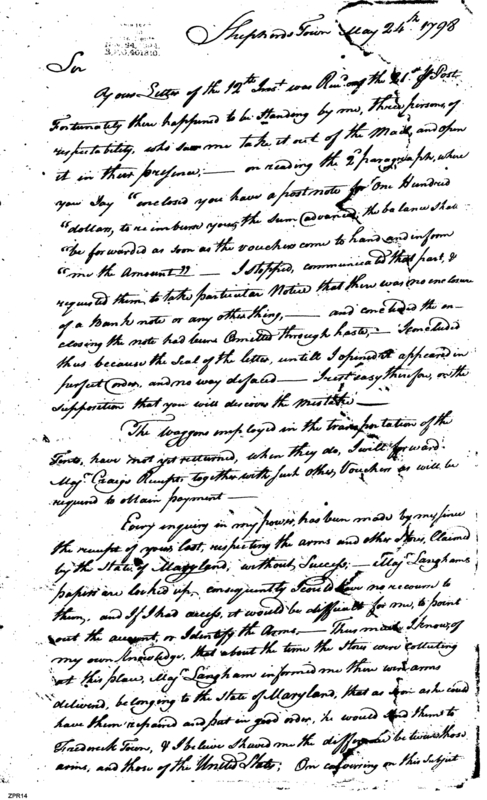 Shepherds Town May 24th 1798
Sir
Yours Letter of the 12th Inst was Recd ong the 21st Post
Fortunately there happened to be Standing by me, three persons, of
respectability, who saw me take it out of the Mail, and open
it in their presence, — on reading the 2d paragraph, where
you Say "enclosed you have a post note for One Hundred
"dollars, to reimburse you, the sum advanced, the balance shall
"be forwarded as soon as the vouchers come to hand and inform
"me the Amount" — I stopped, communicated that part, &
requested them to take particular Notice that there was no enclosure
of a Bank note or any other thing, — and concluded the en-
closing the note had been Omitted through haste, — I concluded
thus because the Seal of the letter, untill I opened it appeared in
perfect Order, and no way defaced — I rest easy therefore, on the
Supposition that you will discover the mistake —
The Waggons employed in the transportation of the
Tents, have not yet returned, when they do, I will forward
Majr Craigs Receipts together with such other Vouchers as will be
required to obtain payment —
Every enquiry in my power, has been made by me, since
the receipt of yours last, respecting the arms and other Stores, Claimed
by the State of Maryland, without Success, — Majr Langhams
papers are locked up, consequently I could have no recourse to
them, and If I had access, it would be difficult for me, to point
out the account, or Identify the Arms, — Thus much I know, of
my own knowledge, that about the time the Stores were collecting
at this place, Majr Langham informed me there were arms
delivered, belonging to the State of Maryland, that as soon as he could
have them repaired and put in good order, he would send them to
Frederick Town, & I believe shewed me the difference between those
arms, and those of the United States; On conversing on this Subject
ZPR14